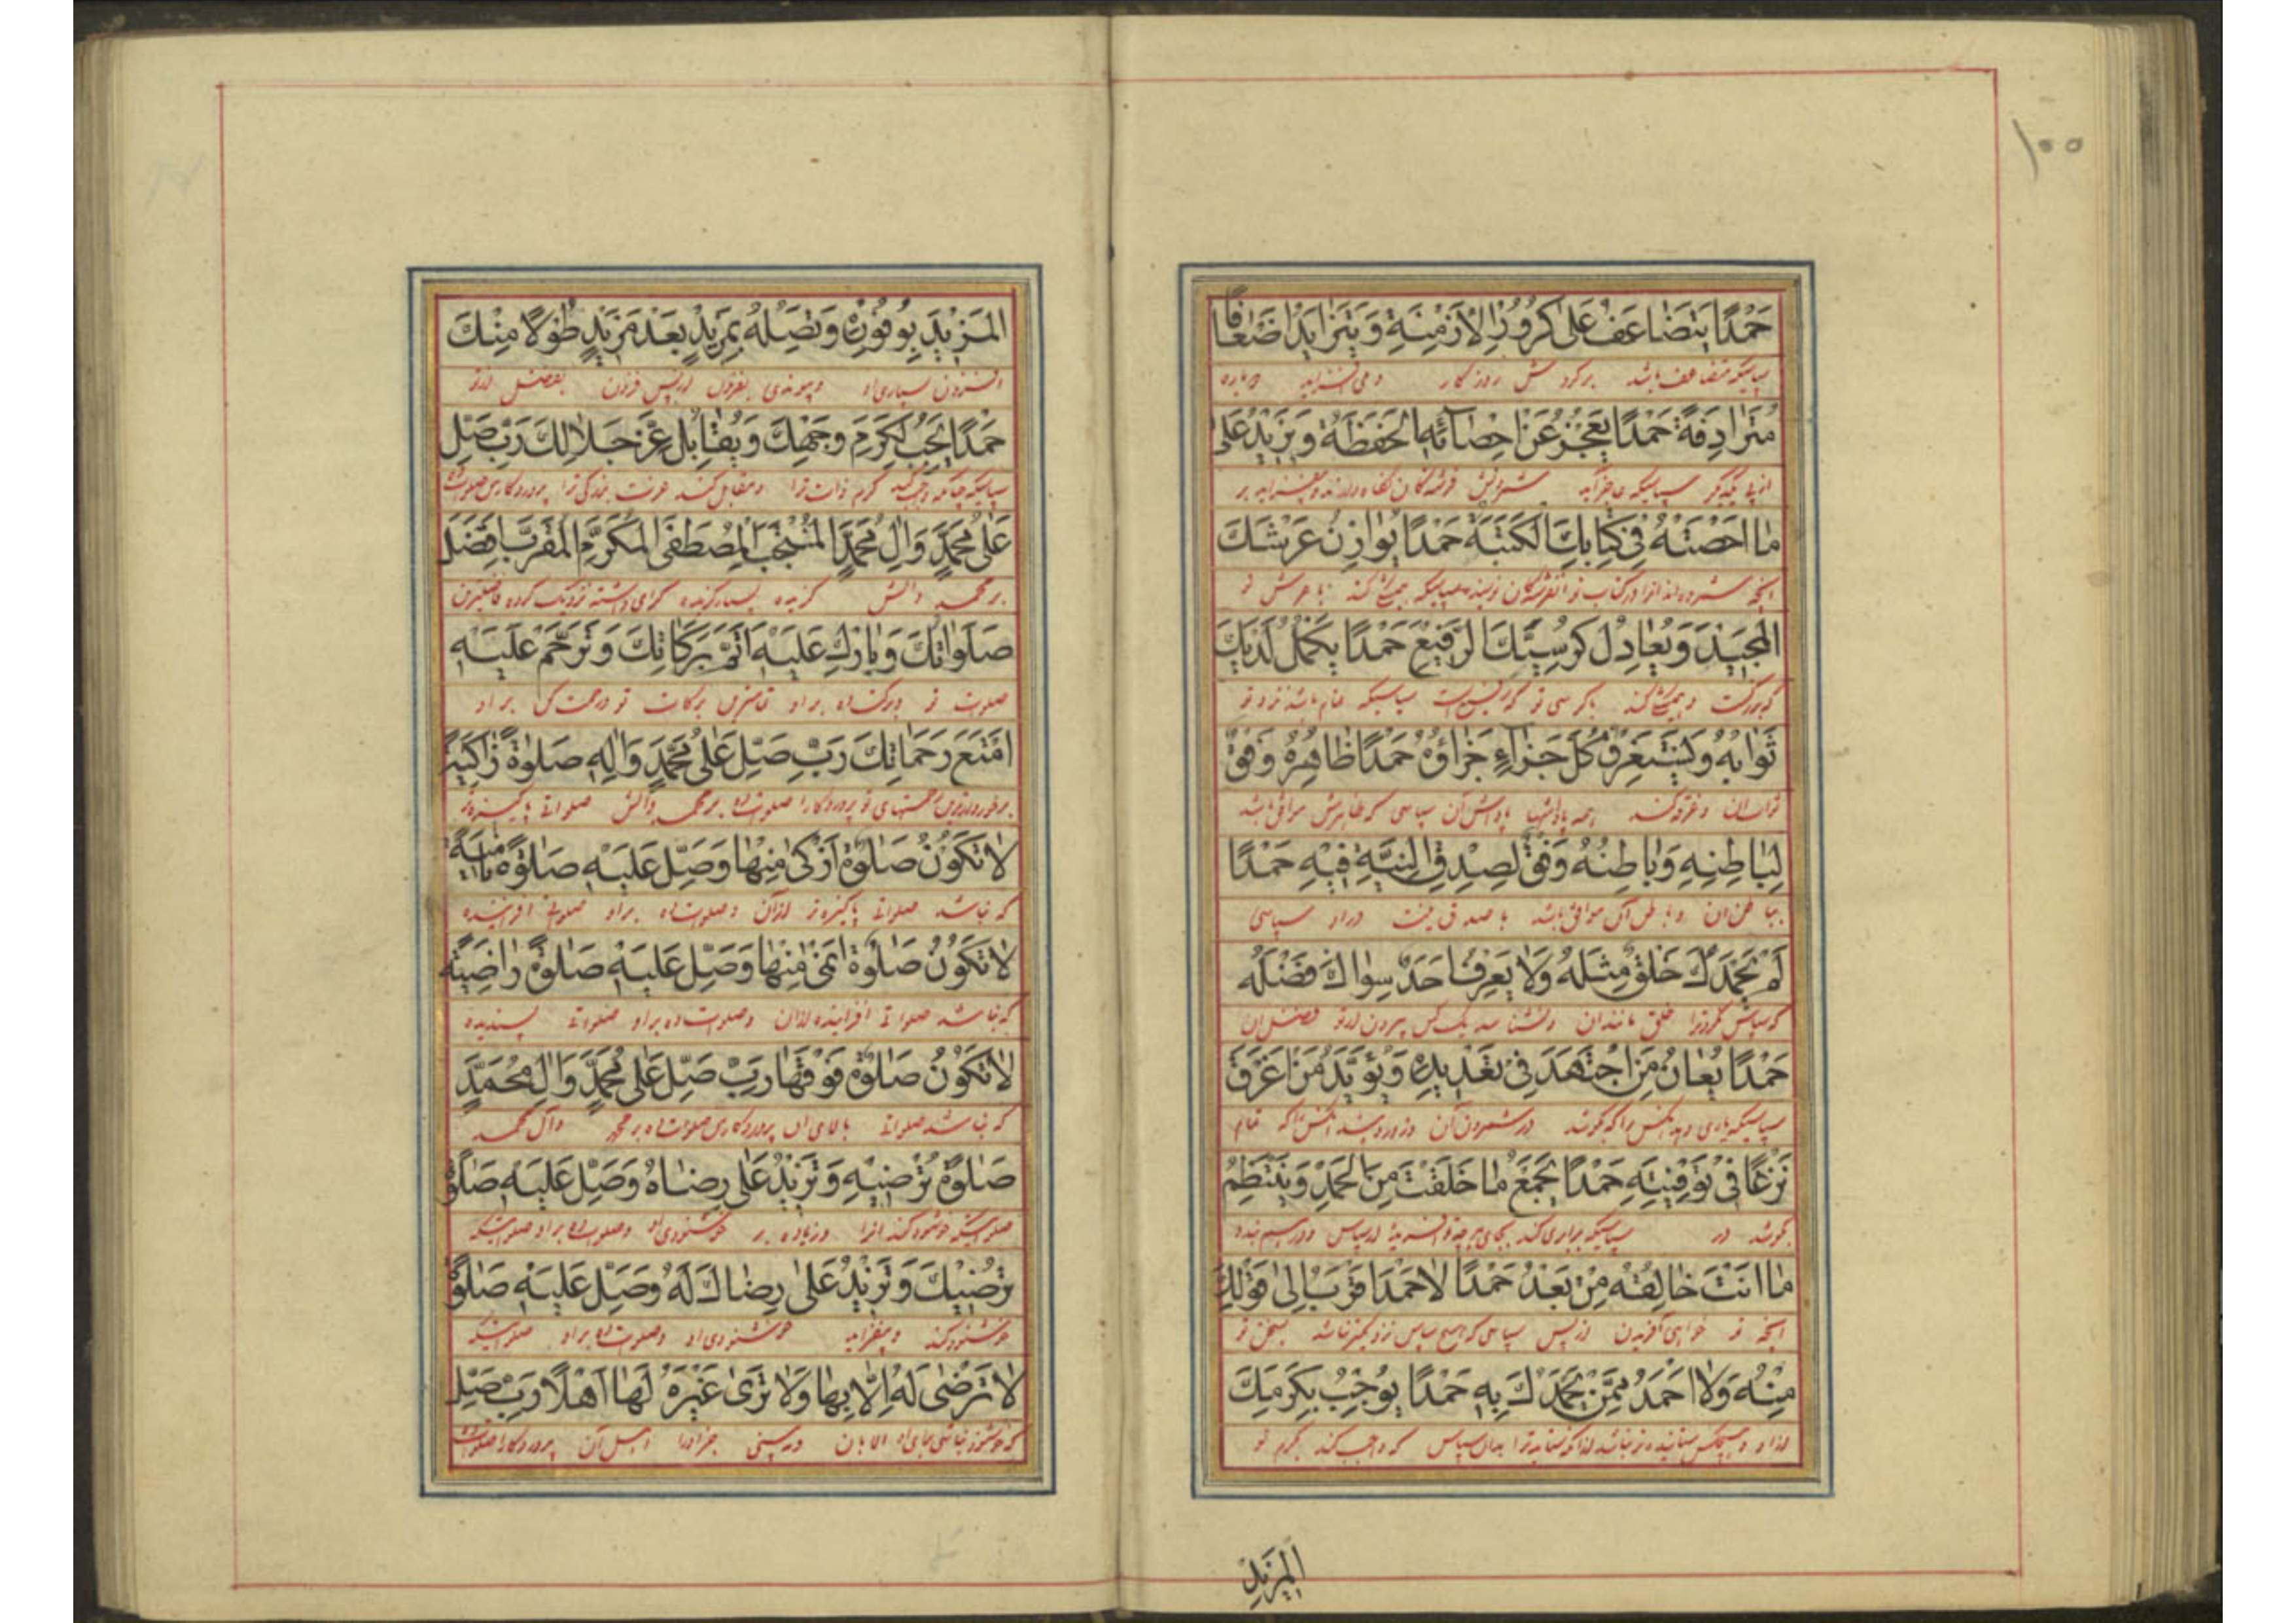 ۱۰۰
حَمْدًا يَتَضَاعَفُ عَلَىٰ كُرُورِ الْأَزْمِنَةِ وَيَتَزَايَدُ أَضْعَافًا
سپاسیکه متضاعف باشد بر گردش روزگار و می افزاید
مُتَرَادِفَةً حَمْدًا يَعْجِزُ عَنْ إِحْصَائِهِ الْحَفَظَةُ وَيَزِيدُ عَلَىٰ
از پی یکدیگر سپاسیکه عاجز آید شمردنش فرشتگان نگاه دارنده و بیفزاید بر
مَا أَحْصَتْهُ فِي كِتَابِكَ الْكَتَبَةُ حَمْدًا يُوَازِنُ عَرْشَكَ
انچه شمرده اند انرا در کتاب تو سپاسیکه کند با عرش تو
الْمَجِيدَ وَيُعَادِلُ كُرْسِيَّكَ الرَّفِيعَ حَمْدًا يَكْمُلُ لَدَيْكَ
با کرسی تو که رفیع است سپاسیکه تمام باشد نزد تو
ثَوَابُهُ وَيَسْتَغْرِقُ كُلَّ جَزَاءٍ جَزَاؤُهُ حَمْدًا ظَاهِرُهُ وَفْقٌ
ثواب ان و غرقه کند همه پاداشها پاداش آن سپاسی که ظاهرش موافق باشد
لِبَاطِنِهِ وَبَاطِنُهُ وَفْقٌ لِصِدْقِ النِّيَّةِ فِيهِ حَمْدًا
بباطن ان و باطن آن موافق باشد با صدق نیت در او سپاسی
لَمْ يَحْمَدْكَ خَلْقٌ مِثْلَهُ وَلَا يَعْرِفُ أَحَدٌ سِوَاكَ فَضْلَهُ
که سپاس نکرد ترا خلق مانند ان و نشناسد یک کس بیرون از تو فضل ان
حَمْدًا يُعَانُ مَنِ اجْتَهَدَ فِي تَعْدِيدِهِ وَيُؤَيَّدُ مَنْ أَغْرَقَ
سپاسیکه یاری دهد انکس را که بکوشد در شمردن آن و زور دهند انکس را که تمام
نَزْعًا فِي تَوْفِيَتِهِ حَمْدًا يَجْمَعُ مَا خَلَقْتَ مِنَ الْحَمْدِ وَيَنْتَظِمُ
بکوشد در سپاسیکه
مَا أَنْتَ خَالِقُهُ مِنْ بَعْدُ حَمْدًا لَا حَمْدَ أَقْرَبُ إِلَىٰ قَوْلِكَ
انچه تو خواهی آفریدن از پس سپاسی که هیچ سپاس نزدیکتر نباشد بسخن تو
مِنْهُ وَلَا أَحْمَدُ مِمَّنْ يَحْمَدُكَ بِهِ حَمْدًا يُوجِبُ بِكَرَمِكَ
از او و هیچکس ستاینده تر نباشد از انکه ستاید ترا بدان سپاس که واجب کند بکرم تو
الْمَزِيدَ
الْمَزِيدَ بِوُفُورِهِ وَتَصِلُهُ بِمَزِيدٍ بَعْدَ مَزِيدٍ طَوْلًا مِنْكَ
افزون بسیاری او و پیوندی بفزون از پس فزون بفضل از تو
حَمْدًا يَجِبُ لِكَرَمِ وَجْهِكَ وَيُقَابِلُ عِزَّ جَلَالِكَ رَبِّ صَلِّ
کرم ذات ترا و مقابل کند عزت بزرگی ترا
عَلَىٰ مُحَمَّدٍ وَآلِ مُحَمَّدٍ الْمُنْتَجَبِ الْمُصْطَفَى الْمُكَرَّمِ الْمُقَرَّبِ أَفْضَلَ
بر محمد و الش گزیده گرامی داشته نزدیک کرده فاضلترین
صَلَوَاتِكَ وَبَارِكْ عَلَيْهِ أَتَمَّ بَرَكَاتِكَ وَتَرَحَّمْ عَلَيْهِ
صلوات تو و برکت ده بر او تمامترین برکات تو و رحمت کن بر او
أَمْتَعَ رَحَمَاتِكَ رَبِّ صَلِّ عَلَىٰ مُحَمَّدٍ وَآلِهِ صَلَاةً زَاكِيَةً
رحمتهای تو پروردگارا صلوات ده بر محمد و آلش صلواتی پاکیزه
لَا تَكُونُ صَلَاةٌ أَزْكَىٰ مِنْهَا وَصَلِّ عَلَيْهِ صَلَاةً نَامِيَةً
که نباشد صلواتی پاکیزه تر از آن و صلوات ده بر او صلواتی افزاینده
لَا تَكُونُ صَلَاةٌ أَنْمَىٰ مِنْهَا وَصَلِّ عَلَيْهِ صَلَاةً رَاضِيَةً
که نباشد صلواتی افزاینده از ان و صلوات ده بر او صلواتی پسندیده
لَا تَكُونُ صَلَاةٌ فَوْقَهَا رَبِّ صَلِّ عَلَىٰ مُحَمَّدٍ وَآلِ مُحَمَّدٍ
که نباشد صلواتی بالای ان پروردگارا صلوات ده بر محمد و آل محمد
صَلَاةً تُرْضِيهِ وَتَزِيدُ عَلَىٰ رِضَاهُ وَصَلِّ عَلَيْهِ صَلَاةً
صلواتیکه خوشنود کند انرا و زیاده بر خوشنودی او و صلوات ده بر او صلواتیکه
تُرْضِيكَ وَتَزِيدُ عَلَىٰ رِضَاكَ لَهُ وَصَلِّ عَلَيْهِ صَلَاةً
خوشنود کند و بیفزاید خوشنودی او و صلوات ده بر او صلواتیکه
لَا تَرْضَىٰ لَهُ إِلَّا بِهَا وَلَا تَرَىٰ غَيْرَهُ لَهَا أَهْلًا رَبِّ صَلِّ
که خوشنود نباشی الا بان و نه بینی جز او را اهل آن پروردگارا